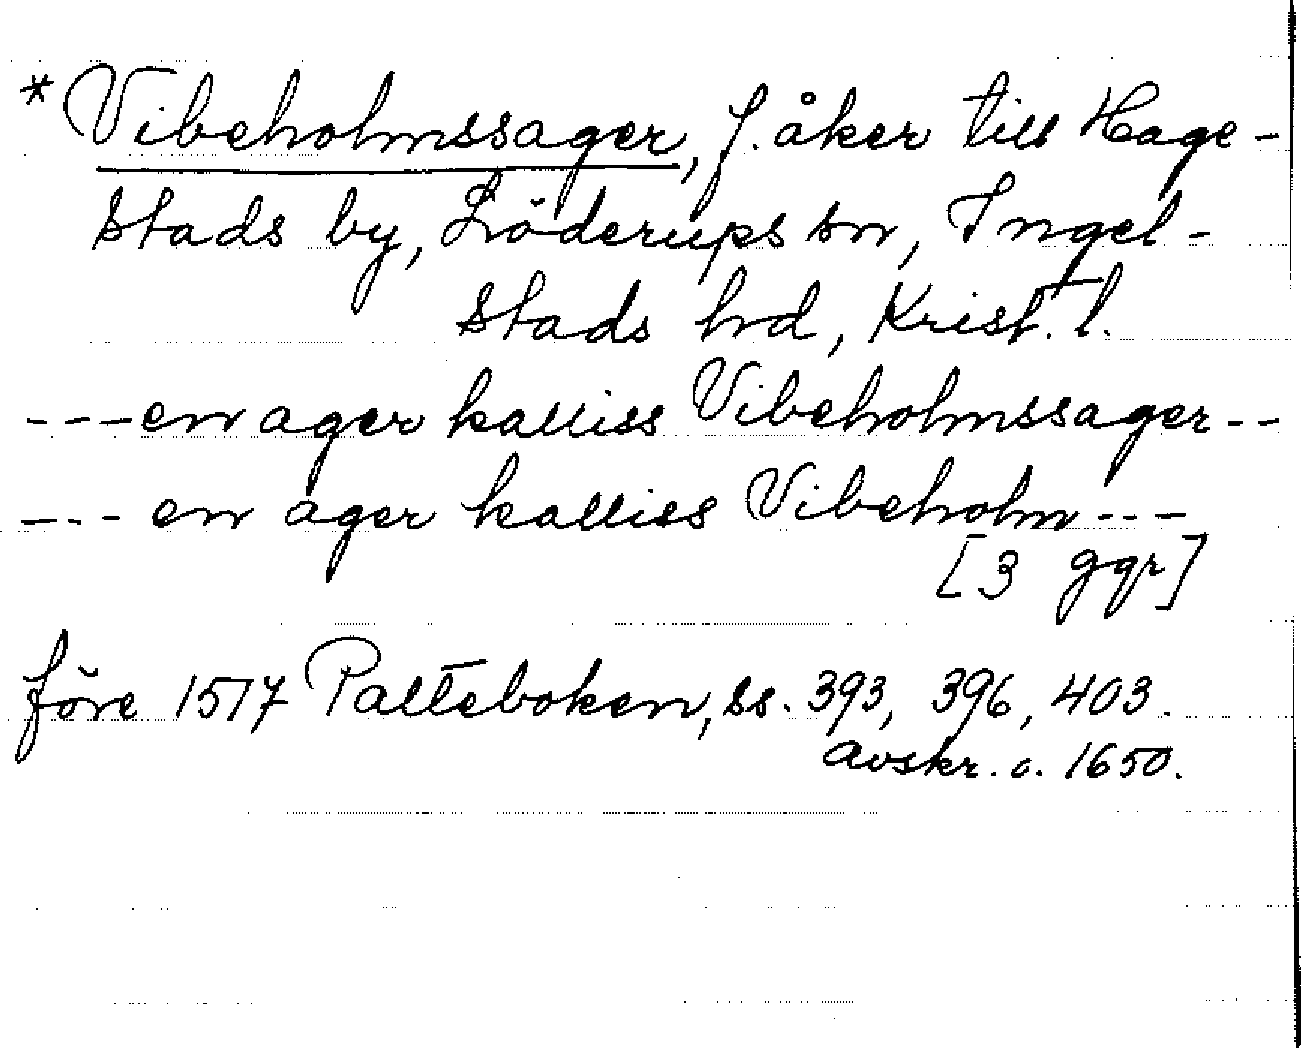 *Vibeholmssager, f. åker till Hage-
stads by, Löderups sn, Ingel-
stads hd, Krist. l.
---en ager kalliss Vibeholmssager--
---en ager kalliss Vibeholm---
[3 ggr]
före 1517 Palteboken, ss. 393, 396, 403.
avskr. o. 1650.